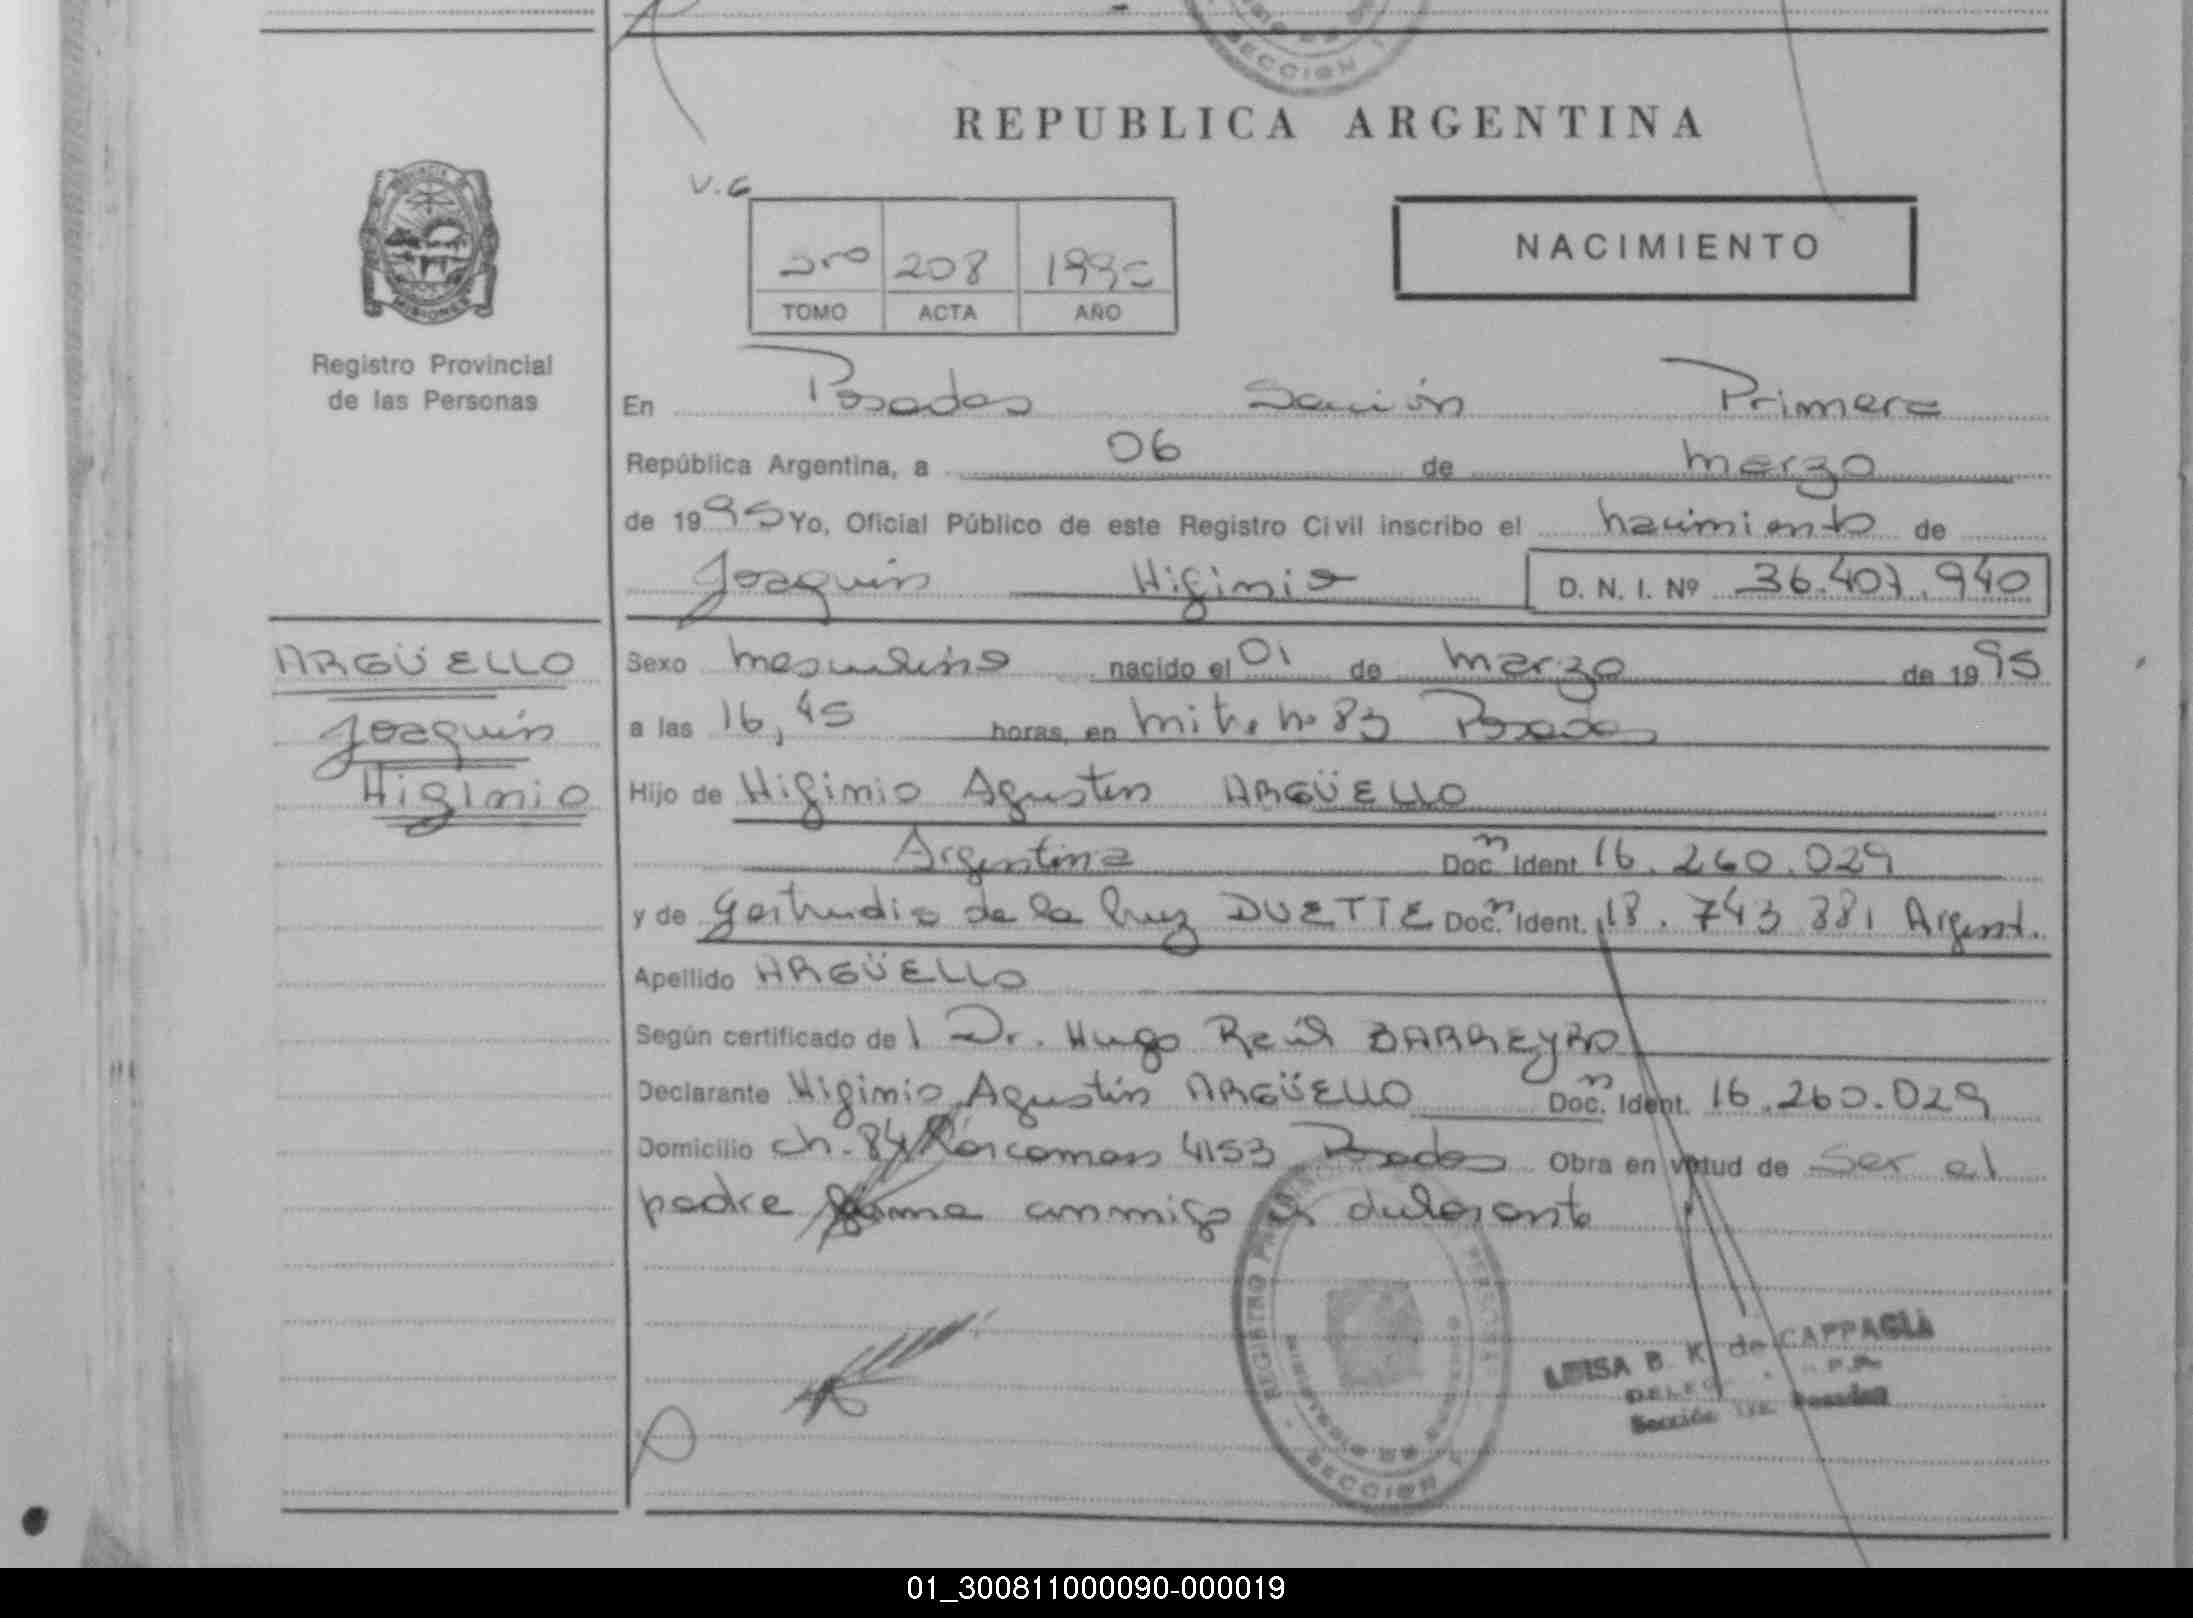 SECCION 1
REPUBLICA ARGENTINA
V. G
3ro 208 1995
TOMO ACTA AÑO
NACIMIENTO
MISIONES
Registro Provincial
de las Personas
En Posadas Sección Primera
República Argentina, a 06 de marzo
de 1995 Yo, Oficial Público de este Registro Civil inscribo el nacimiento de
Joaquín Higinio D. N. I. Nº 36.407.940
ARGÜELLO
Joaquín
Higinio
Sexo masculino nacido el 01 de marzo de 1995
a las 16,45 horas, en mitre nº 83 Posadas
Hijo de Higinio Agustín ARGÜELLO
Argentina Doc. Ident. 16.260.029
y de Gertrudis de la Cruz DUETTE Doc. Ident. 18.743.881 Argent.
Apellido ARGÜELLO
Según certificado del Dr. Hugo Raúl BARREYRO
Declarante Higinio Agustín ARGÜELLO Doc. Ident. 16.260.029
Domicilio ch. 84 4153 Posadas Obra en virtud de Ser el
padre firma conmigo el declarante
REGISTRO PROVINCIAL DE LAS PERSONAS
MINISTERIO DE GOBIERNO
SECCION 1
LUISA B. K. de CAPPAGLI
Sección 1ra. Posadas
01_300811000090-000019